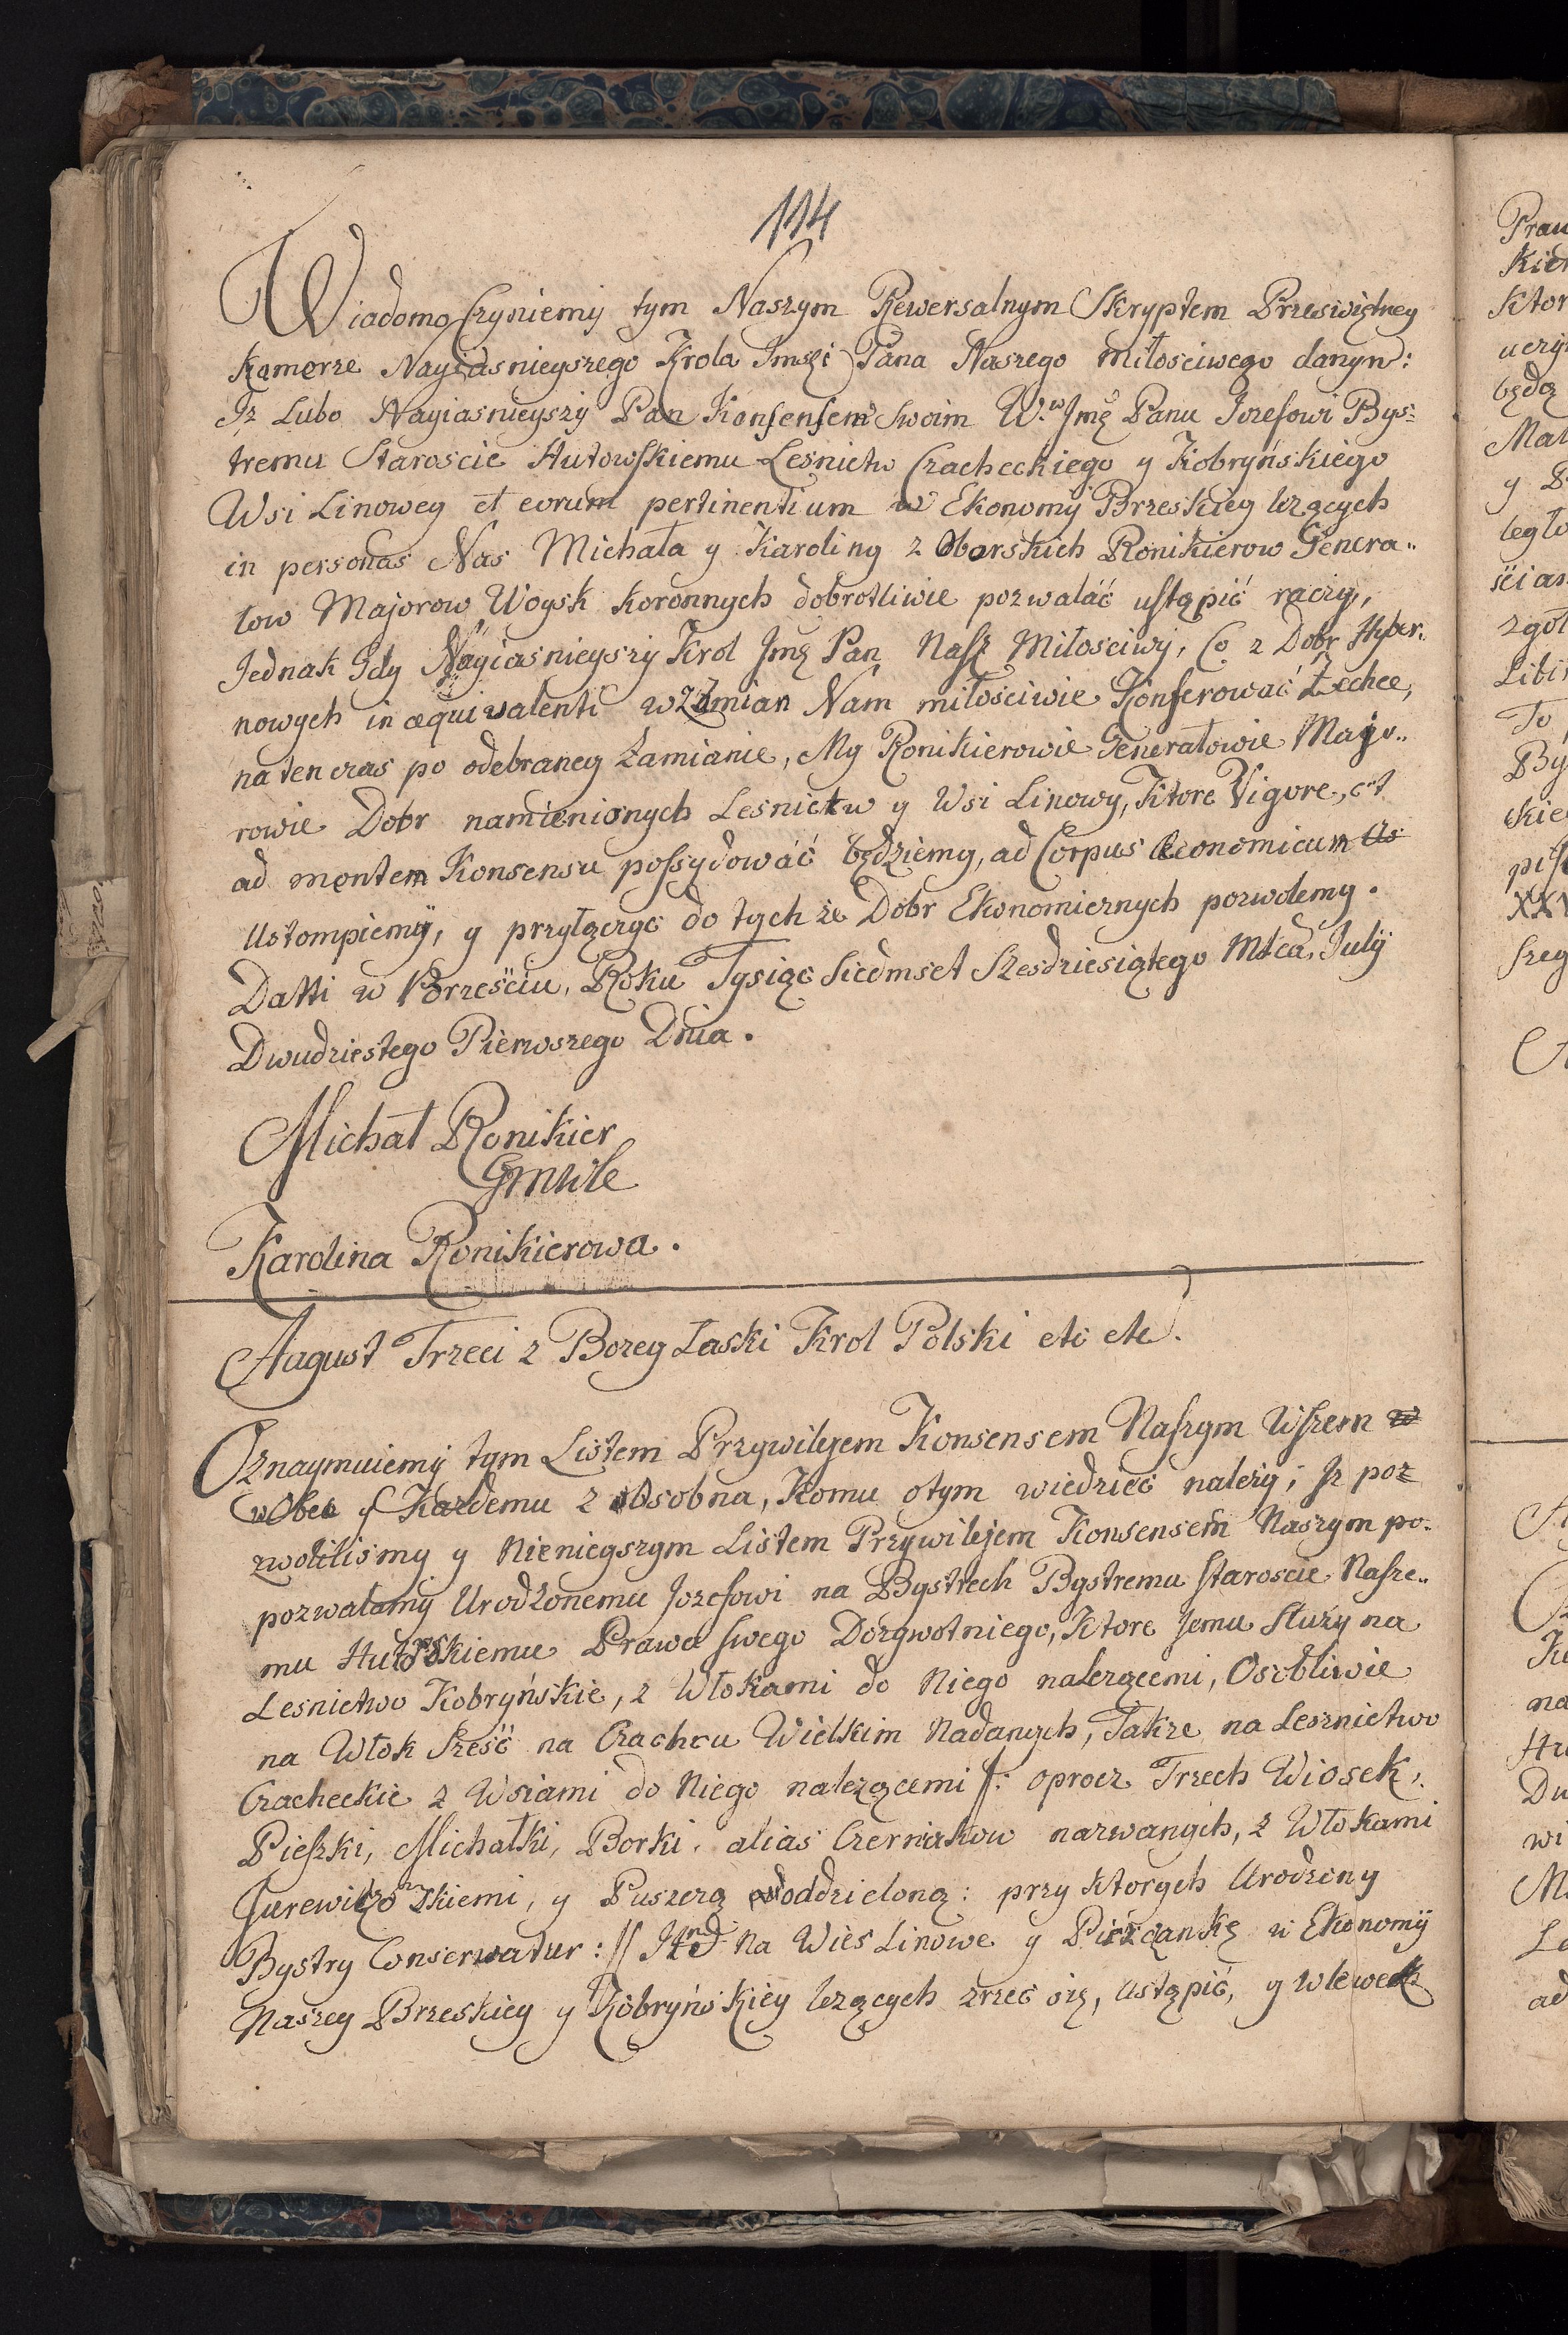 114
Wiadomo Czyniemy tym Naszym Rewersalnym Skryptem Przeswiętney
Kamerze Nayiasnieyszego Krola Imści Pana Naszego miłosciwego danym:
Iz Lubo Nayiasnieyszy Pan Konsensem Swoim W.w Jmę Panu Jozefowi Bys=
tremu Staroscie Hutowskiemu Lesnictw Czacheckiego y Kobryńskiego
Wsi Linowey et eorum pertinentium w Ekonomij Brzeskiey lezących
in personas Nas Michała y Karoliny z Oborskich Ronikierow Genera..
łow Majorow Woysk Koronnych dobrotliwie pozwalać ustąpić raczy,
Jednak Gdy Nayiasnieyszy Krol Jmę Pan Nasz Miłosciwy, Co z Dobr Hyber..
nowych in aequivalenti wzamian Nam miłosciwie Konferować Zechce,
na ten czas po odebraney Zamianie, My Ronikierowie Generałowie Majo..
rowie Dobr namienionych Lesnictw y Wsi Linowy, Ktore Vigore, et
ad mentem Konsensu possydować będziemy, ad Corpus Oeconomicum us
Ustompiemy, y przyłączyc do tych ze Dobr Ekonomicznych pozwolemy.
Datti w Brzesciu, Roku Tysiąc Siedmset Szesdziesiątego Mca July
Dwudziestego Pierwszego Dnia.
Michał Ronikier
GMWK
Karolina Ronikierowa.
August Trzeci z Bozey Łaski Krol Polski etc etc.
Oznaymuiemy tym Listem Przywilejem Konsensem Naszym Wszem w
wObec y Kazdemu z Osobna, Komu otym wiedziec nalezy; Iz poz
zwolilismy y Nienieyszym Listem Przywilejem Konsensem Naszym po.
pozwalamy Urodzonemu Jozefowi na Bystrech Bystremu Staroscie Nasze..
mu Hutowskiemu Prawa swego Dozywotniego, Ktore Jemu Służy na
Lesnictwo Kobryńskie, z Włokami do Niego nalezącemi, Osobliwie
na Włok Sześć na Czachcu Wielkim Nadanych, Takze na Lesznictwo
Czacheckie z Wsiami do Niego nalezącemi /: oprocz Trzech Wiosek,
Pieszki, Michałki, Borki, alias Czerniakow nazwanych, z Włokami
Jurewiczowskiemi, y Puszczą oddzieloną: przy ktorych Urodzony
Bystry Conserwatur :// Item Na Wies Linowe y Pieszczankę w Ekonomij
Naszey Brzeskiey y Kobryńskiey lezących zrzec się, ustąpić, y wlewek